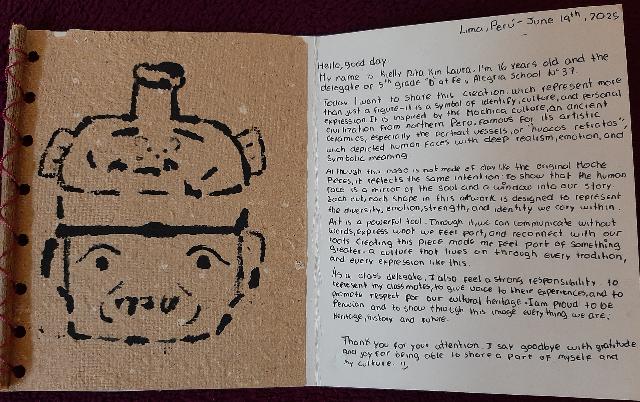 Lima, Perú - June 19th, 2025
Hello, good day
My name is Kielly Rita Kin Laura. I'm 16 years old and the
delegate of 5th grade "D" at Fe y Alegria School N° 37.
Today I want to share this creation, wich represent more
than just a figure-it is a symbol of identify, culture, and personal
expression. It is inspired by the Mochica culture, an ancient
civilization from northern Peru, famous for its artistic
ceramics, especially the portrait vessels, or "huacos retratos",
wich depicted human faces with deep realism, emotion, and
symbolic meaning
Although this image is not made of clay like the original Moche
Pieces, it reflects the same intention: to show that the human
face is a mirror of the soul and a window into our story
Each cut, each shape in this artwork is designed to represent
the diversity, emotion, strength, and identity we carry within.
Art is a powerful tool. Through it, we can communicate without
words, express what we feel part, and reconnect with our
roots Creating this piece made me feel part of something
greater-a culture that lives on through every tradition,
and every expression like this.
As a class delegate, I also feel a strong responsibility to
represent my classmates, to give voice to their experiences, and to
promote respect for our cultural heritage. I am proud to be
Peruvian and to show through this image everything we are,
heritage, history and future.
Thank you for your attention. I say goodbye with gratitude
and joy for being able to share a part of myself and
my culture.